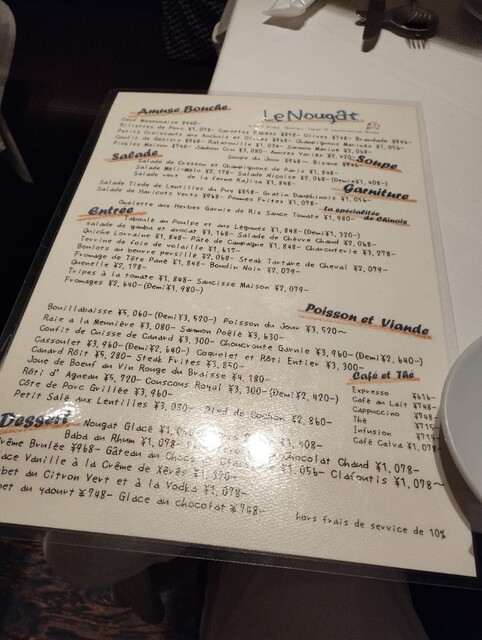 Amuse Bouche
Le Nougat
Oeuf Mayonnaise ¥440-
Rillettes de Porc ¥1,078- Carottes Rapées ¥858- Olives ¥748- Brandade
Petits Croissants aux Anchois et Olives Champignons Marinés
Confit de Gesiers Ratatouille ¥1,078- Saumon Mariné ¥2,068-
Pickles Maison ¥748- Jambon Cru ¥3,080- Amuses Variés ¥2,420-
Salade
Soupe du Jour Bisque
Soupe
Salade de Cresson et Champignons de Paris ¥1,848-
Salade Méli-Mélo ¥2,178- Salade Niçoise ¥2,068-(Demi¥1,408-)
Salade vert de la Ferme ¥1,848-
Garniture
Salade Tiede de Lentilles du Puy ¥858- Gratin Dauphinois
Salade de Haricots Verts ¥968- Pommes Frites ¥1,078-
la spécialités de Chinois
Omelette aux Herbes Garnie de Ris Sauce Tomate ¥1,980-
Entrée
Taboulé au Poulpe et aux Légumes ¥1,848-(Demi¥1,320-)
Salade de gamba et avocat ¥3,168- Salade de Chèvre Chaud ¥2,068-
Quiche Lorraine ¥1,848- Pâté de Campagne ¥1,848- Charcuterie ¥3,278-
Terrine de foie de volaille ¥1,617-
Bulots au beurre persillé ¥2,068- Steak Tartare de Cheval ¥2,079-
Fromage de Tête Pané ¥1,848- Boudin Noir ¥2,079-
Quenelle ¥2,178-
Tripes à la tomate ¥1,848- Saucisse Maison ¥2,079-
Fromages ¥2,640-(Demi¥1,980-)
Poisson et Viande
Bouillabaisse ¥5,060-(Demi¥3,520-) Poisson du Jour ¥3,520~
Raie a la Meunière ¥3,080- Saumon Poêlé ¥3,630-
Confit de Cuisse de Canard ¥3,300- Choucroute Garnie ¥3,960-(Demi¥2,640-)
Cassoulet ¥3,960-(Demi¥2,640-) Coquelet et Rôti Entier ¥3,300-
Canard Rôti ¥5,280- Steak Frites ¥3,850-
Joue de Boeuf au Vin Rouge du Braisse ¥4,180-
Rôti d'Agneau ¥5,720- Couscous Royal ¥3,300-(Demi¥2,420-)
Côte de Porc Grillée ¥3,960-
Petit Salé aux Lentilles ¥3,080- Pied de Cochon ¥2,860-
Café et Thé
Expresso ¥616-
Café au Lait ¥748-
Cappuccino ¥748-
Thé ¥715-
Infusion ¥715-
Café Calva ¥1,078-
Dessert
Nougat Glacé
Baba au Rhum ¥1,078- Chocolat Chaud ¥1,078-
Crème Brulée ¥968- Gâteau au ¥1,056- Clafoutis ¥1,078~
Glace Vanille à la Crème de Xérès
Sorbet au Citron Vert et à la Vodka ¥1,078-
Sorbet au yaourt ¥748- Glace au chocolat ¥748-
hors frais de service de 10%